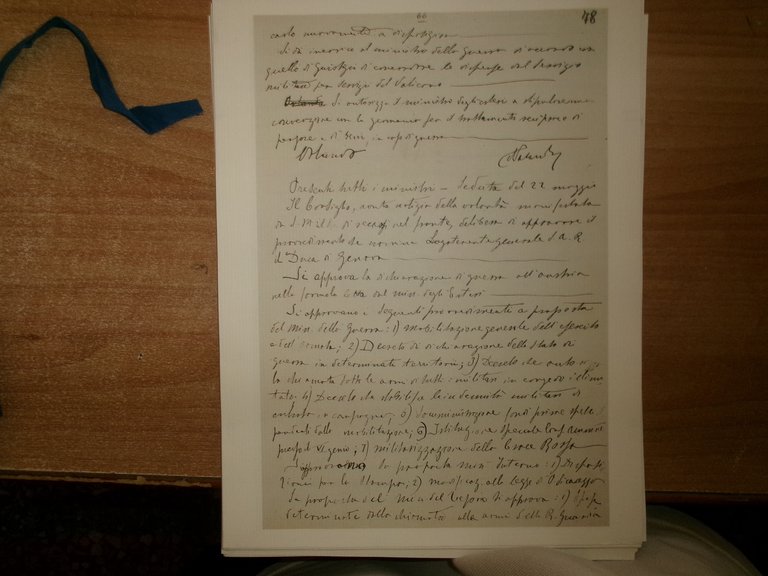 66
48
carlo nuovamente a disposizione
Si dà incarico al ministro della guerra d'accordo con
quello di Giustizia di concordare le dispense dal servizio
militare per servizi del Vaticano
Si autorizza il ministro degli esteri a stipulare una
convenzione con la Germania per il trattamento reciproco di
persone e di beni, in caso di guerra
Orlando
Salandra
Presenti tutti i ministri – Seduta del 22 maggio
Il Consiglio, avuta notizia della volontà manifestata
da S. M. il Re di recarsi nel fronte, delibera di approvare il
provvedimento che nomina Luogotenente generale S. A. R.
il Duca di Genova
Si approva la dichiarazione di guerra all'Austria
nella formula letta dal min. degli Esteri
Si approvano i seguenti provvedimenti a proposta
del Min. della Guerra: 1) mobilitazione generale dell'esercito
e dell'armata; 2) Decreto di dichiarazione dello stato di
guerra in determinati territori; 3) Decreto che autorizza
la chiamata sotto le armi di tutti i militari in congedo illimi
tato; 4) Decreto che stabilisce le indennità militari di
entrata in campagna; 5) somministrazione fondi prime spese
dalla mobilitazione; 6) Istituzione speciale
7) militarizzazione della Croce Rossa
Si approvano su proposta min. Interno: 1) Disposi
zioni per la Stampa; 2) modificaz. alla legge di P.
Su proposta del Min. del Tesoro si approva: 1)
determinate dalla chiamata alle armi della R. Guardia